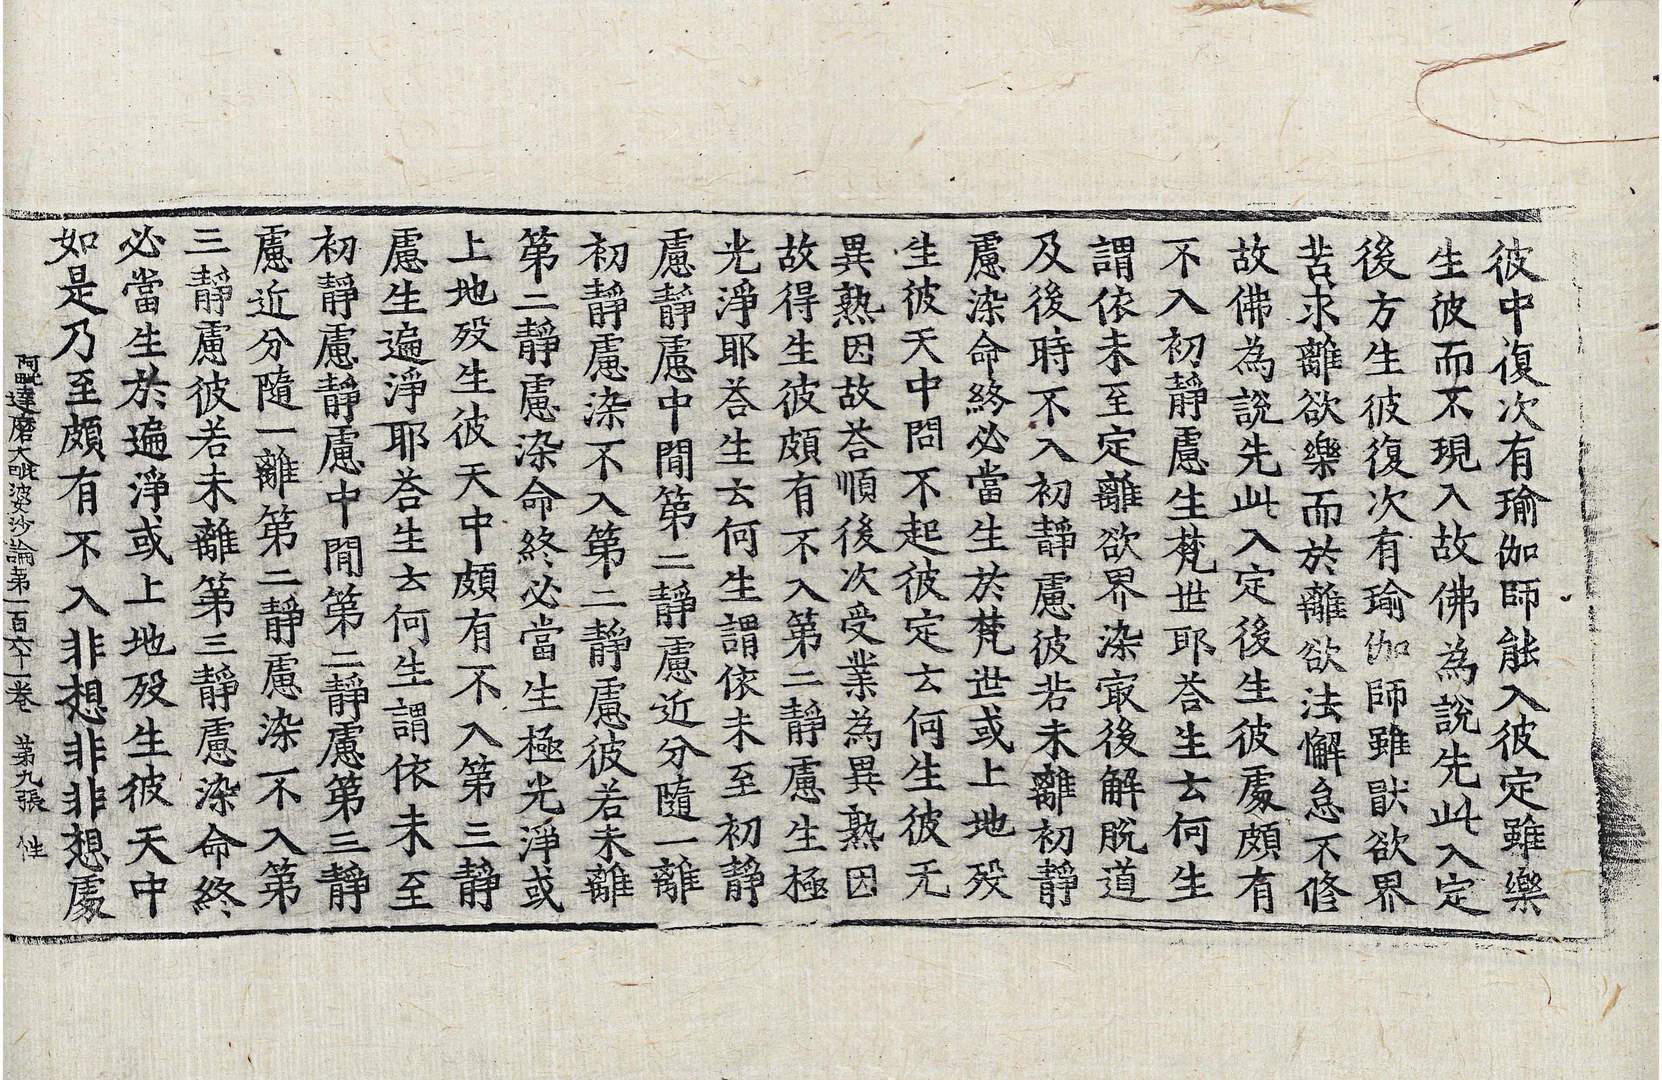 彼中復次有瑜伽師能入彼定雖樂
生彼而不現入故佛為說先此入定
後方生彼復次有瑜伽師雖猒欲界
苦求離欲樂而於離欲法懈怠不修
故佛為說先此入定後生彼處頗有
不入初靜慮生梵世耶荅生云何生
謂依未至定離欲界染㝡後解脫道
及後時不入初靜慮彼若未離初靜
慮染命終必當生於梵世或上地歿
生彼天中問不起彼定云何生彼无
異熟因故荅順後次受業為異熟因
故得生彼頗有不入第二靜慮生極
光淨耶荅生云何生謂依未至初靜
慮靜慮中間第二靜慮近分隨一離
初靜慮染不入第二靜慮彼若未離
第二靜慮染命終必當生極光淨或
上地歿生彼天中頗有不入第三靜
慮生遍淨耶荅生云何生謂依未至
初靜慮靜慮中間第二靜慮第三靜
慮近分隨一離第二靜慮染不入第
三靜慮彼若未離第三靜慮染命終
必當生於遍淨或上地歿生彼天中
如是乃至頗有不入非想非非想處
阿毗達磨大毗婆沙論第一百六十一卷 第九張 性